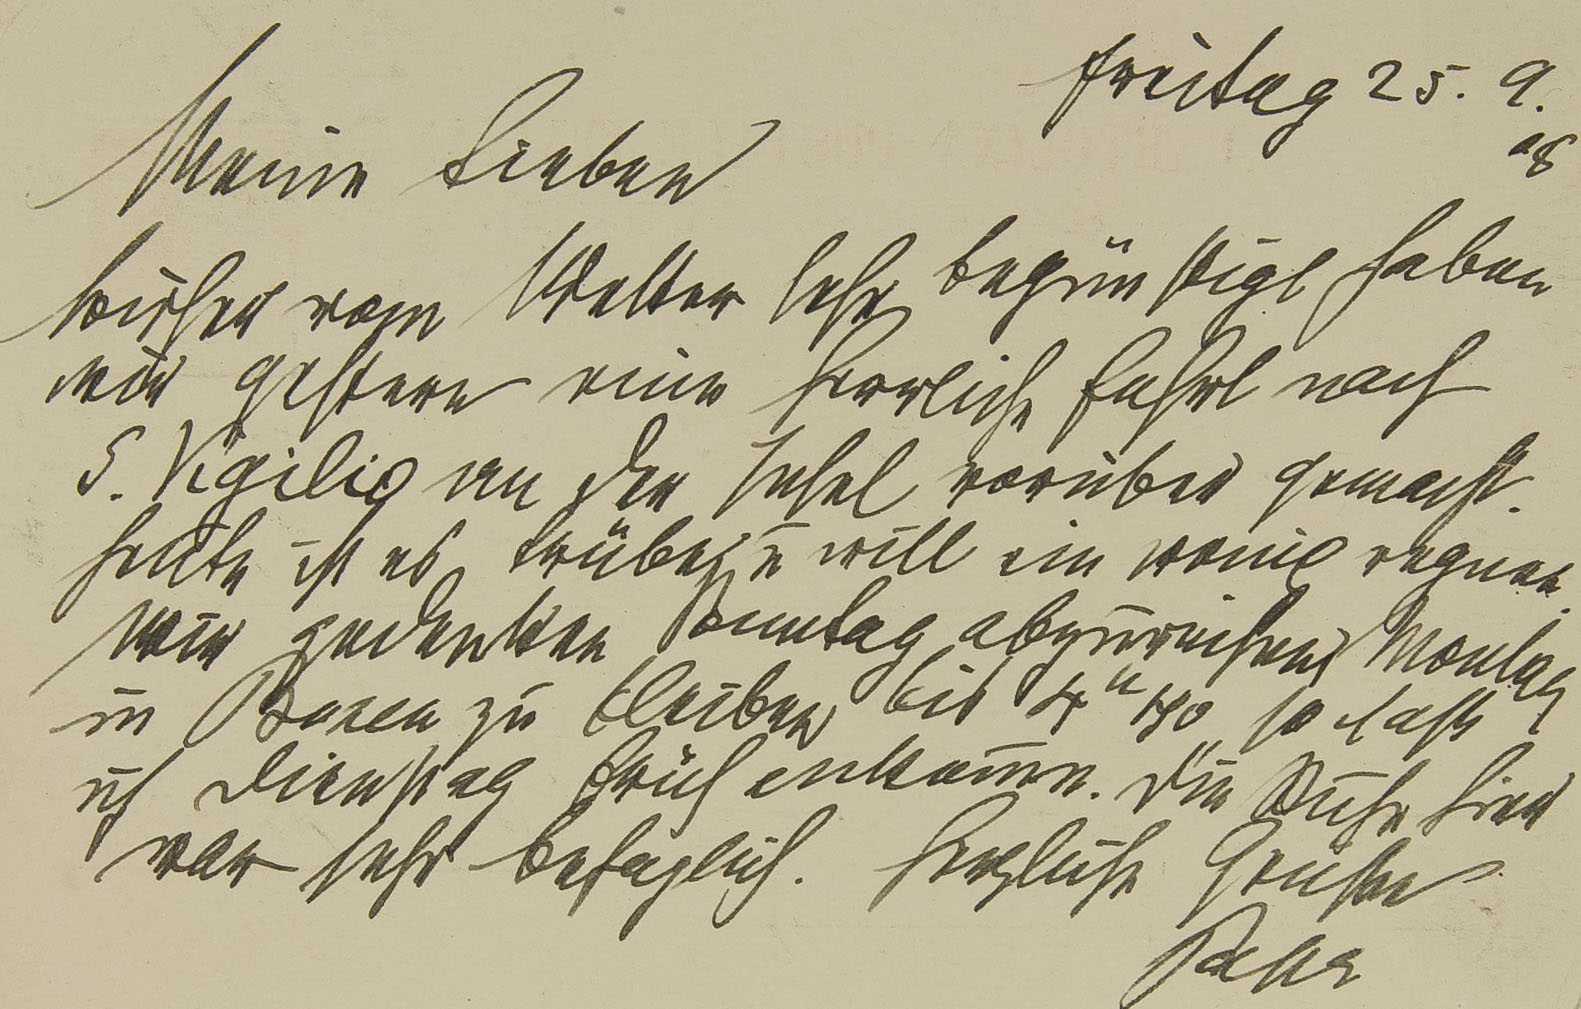 Freitag 25. 9.
08
Meine Lieben
bisher vom Wetter sehr begünstigt haben
wir gestern eine herrliche Fahrt nach
S. Vigilio an der Insel vorüber gemacht.
Heute ist es trübe, u will ein wenig regnen.
Wir gedenken Sonntag abzureisen Montag
in Bozen zu bleiben bis 4 u 40 so dass
ich Dienstag früh ankomme. Die Ruhe hier
war sehr behaglich. Herzliche Grüsse
Papa